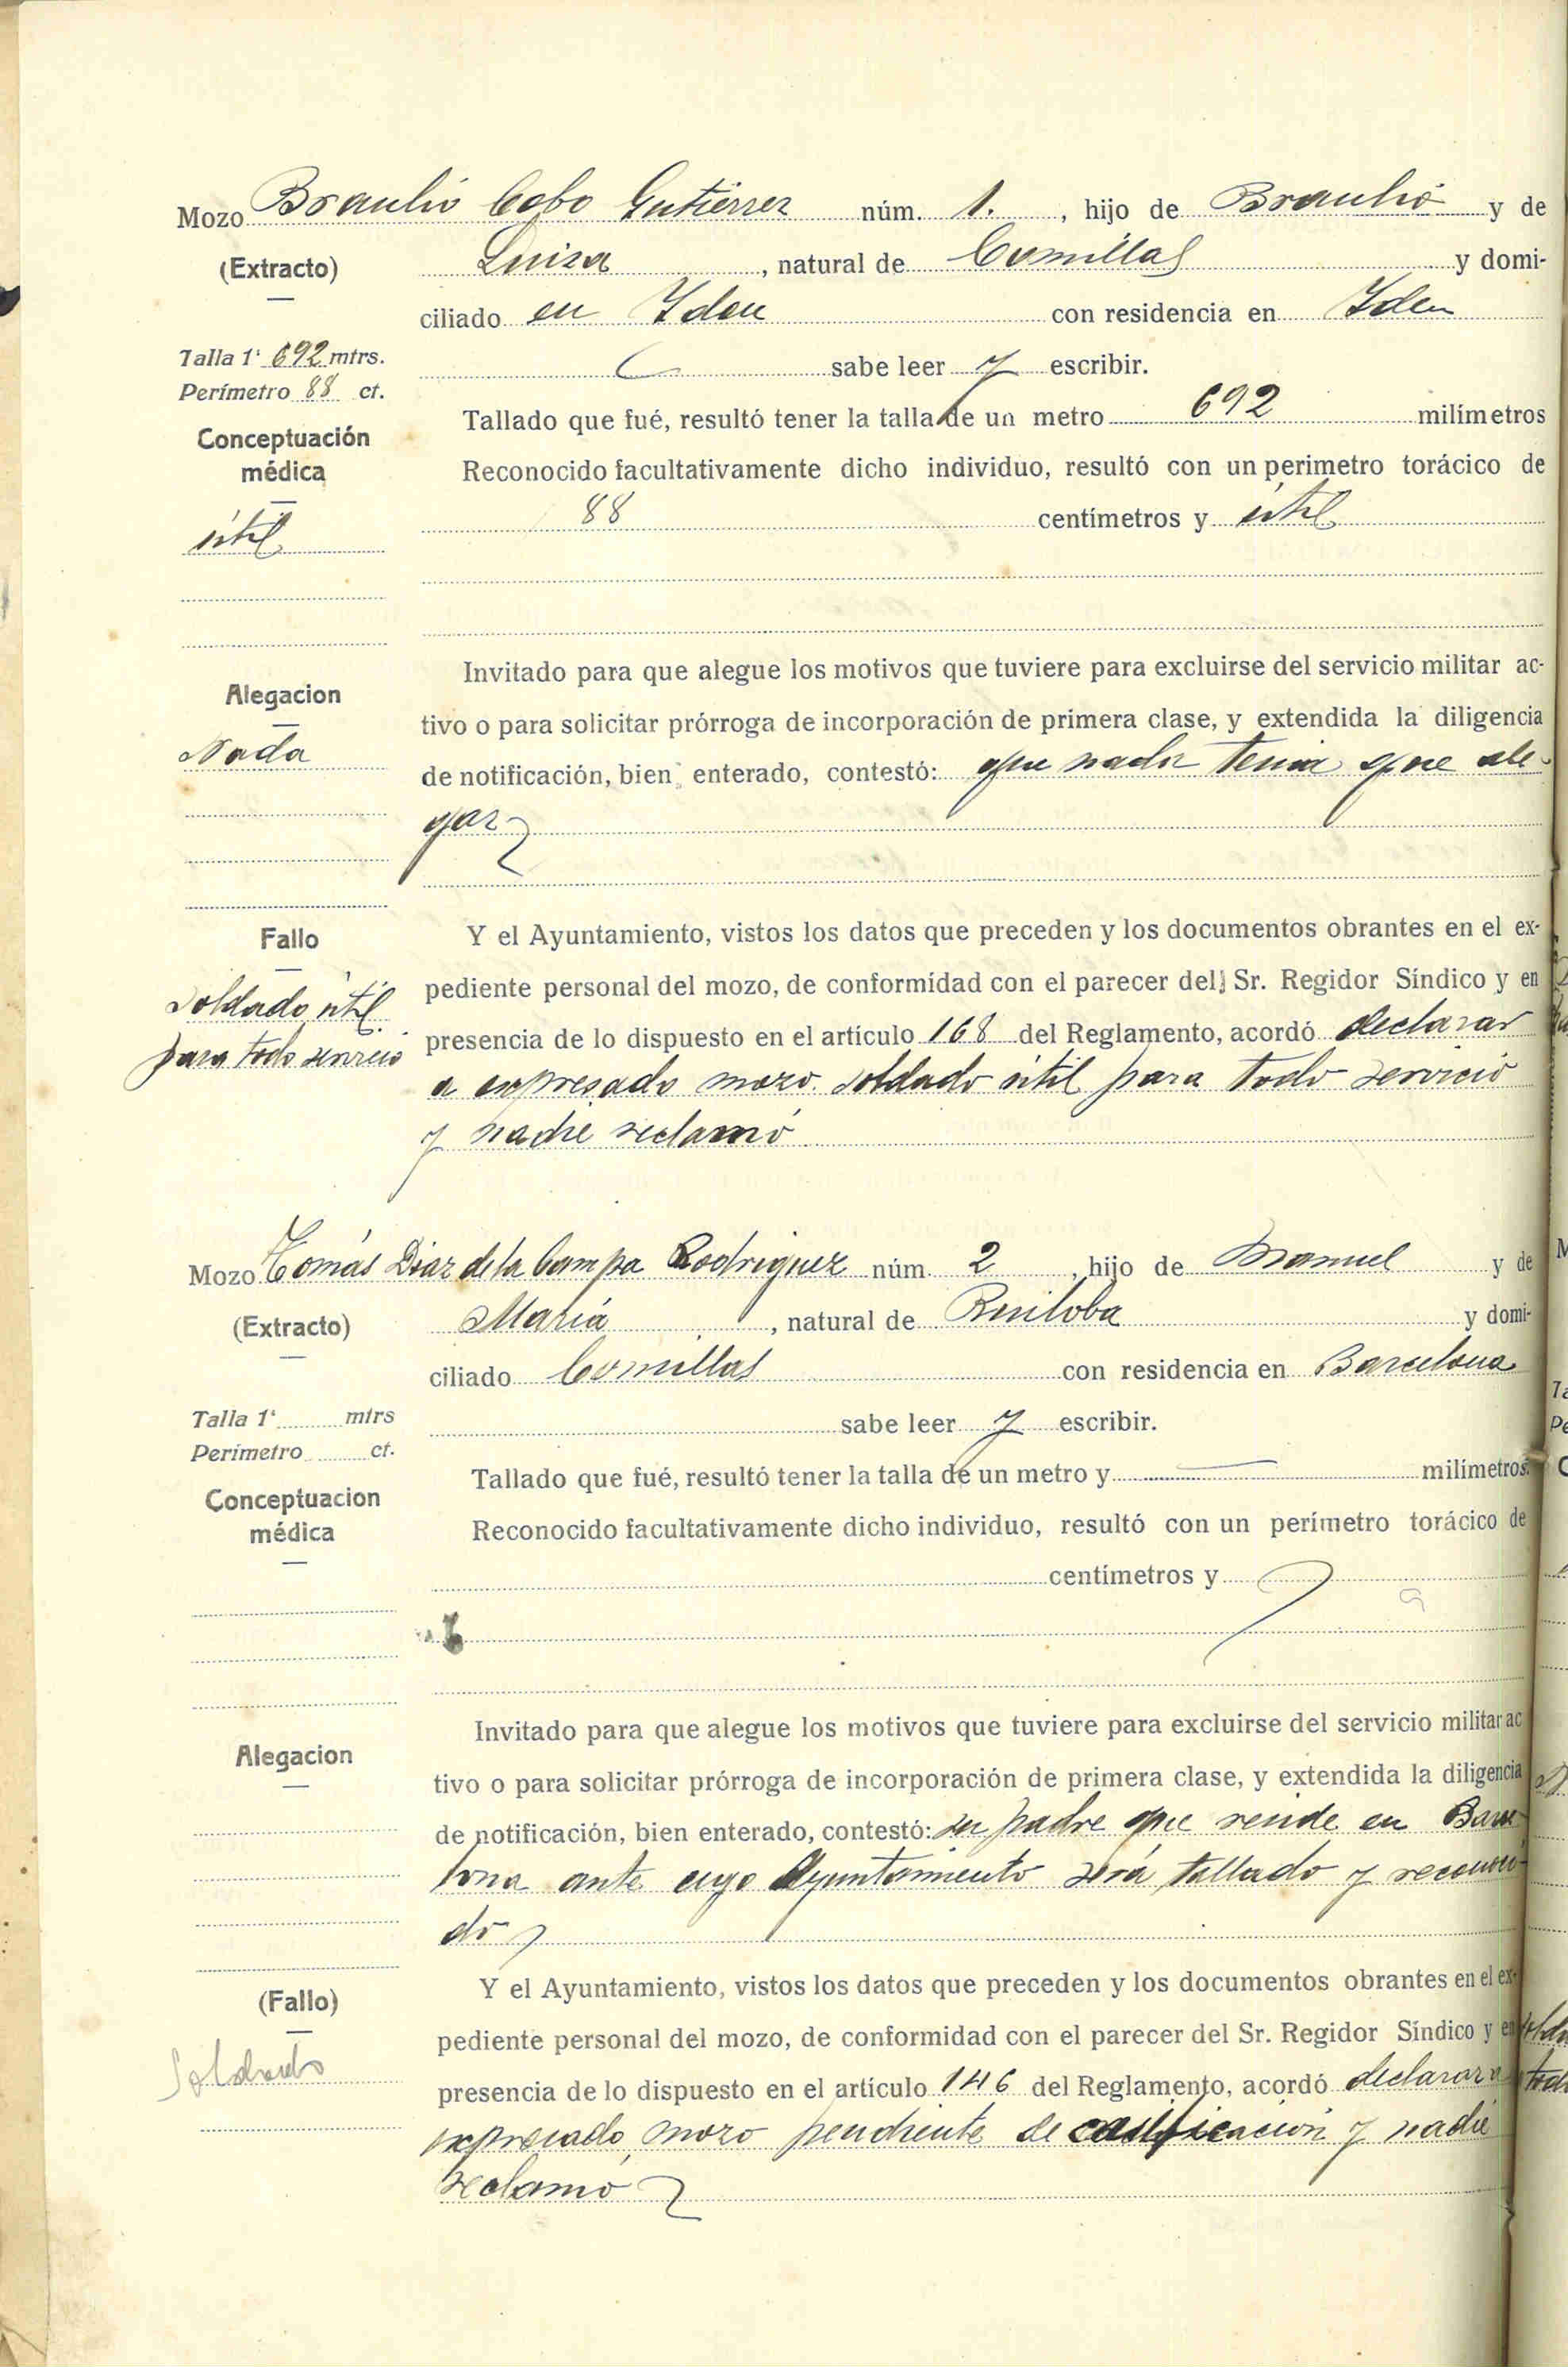 Mozo Braulio Cobo Gutierrez núm. 1. , hijo de Braulio y de
(Extracto)
Luisa , natural de Comillas y domi-
ciliado en Idem con residencia en Idem
Talla 1' 692 mtrs.
sabe leer y escribir.
Perímetro 88 ct.
Tallado que fué, resultó tener la talla de un metro 692 milímetros
Conceptuación
médica
Reconocido facultativamente dicho individuo, resultó con un perimetro torácico de
útil
88 centímetros y útil
Invitado para que alegue los motivos que tuviere para excluirse del servicio militar ac-
Alegacion
tivo o para solicitar prórroga de incorporación de primera clase, y extendida la diligencia
Nada
de notificación, bien enterado, contestó: que nada tenia que ale-
gar
Fallo
Y el Ayuntamiento, vistos los datos que preceden y los documentos obrantes en el ex-
pediente personal del mozo, de conformidad con el parecer del Sr. Regidor Síndico y en
Soldado útil
presencia de lo dispuesto en el artículo 168 del Reglamento, acordó declarar
para todo servicio
a expresado mozo soldado útil para todo servicio
y nadie reclamó
Mozo Tomás Diaz de la Campa Rodriguez núm. 2 , hijo de Manuel y de
(Extracto)
María , natural de Ruiloba y domi-
ciliado Comillas con residencia en Barcelona
Talla 1' mtrs
sabe leer y escribir.
Perímetro ct.
Tallado que fué, resultó tener la talla de un metro y milímetros.
Conceptuacion
médica
Reconocido facultativamente dicho individuo, resultó con un perímetro torácico de
centímetros y
Invitado para que alegue los motivos que tuviere para excluirse del servicio militar ac
Alegacion
tivo o para solicitar prórroga de incorporación de primera clase, y extendida la diligencia
de notificación, bien enterado, contestó: su padre que reside en Barce-
lona ante cuyo Ayuntamiento será tallado y reconoci-
do
(Fallo)
Y el Ayuntamiento, vistos los datos que preceden y los documentos obrantes en el ex-
pediente personal del mozo, de conformidad con el parecer del Sr. Regidor Síndico y en
Soldado
presencia de lo dispuesto en el artículo 146 del Reglamento, acordó declarar a
expresado mozo pendiente de clasificación y nadie
reclamó